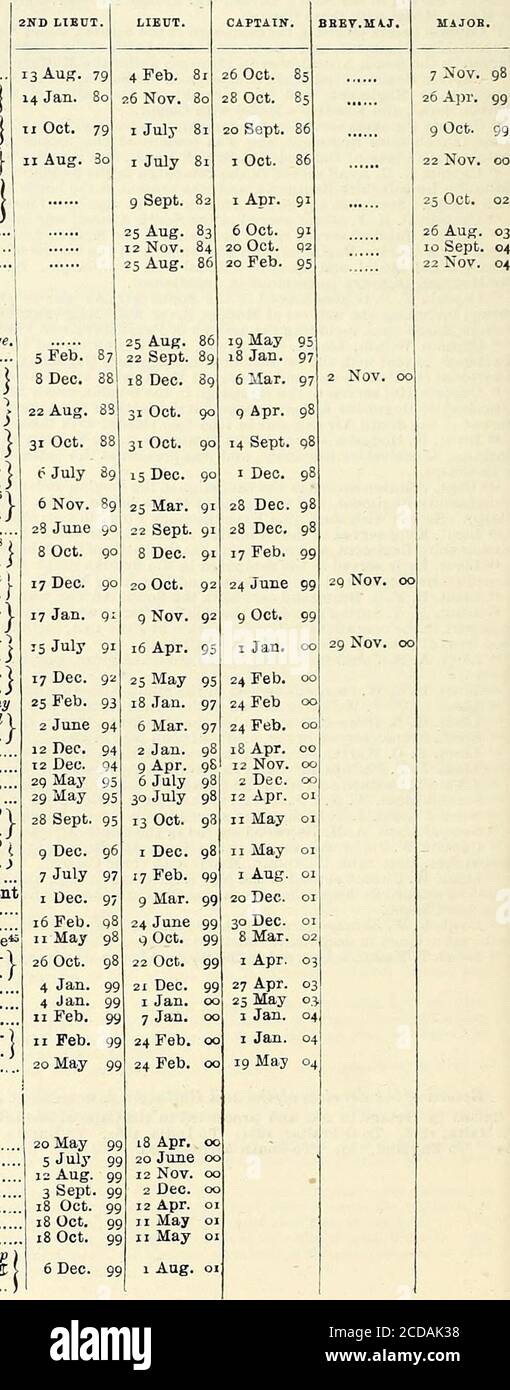 2ND LIEUT. LIEUT. CAPTAIN. BREV.MAJ. MAJOR.
13 Aug. 79 4 Feb. 81 26 Oct. 85 ...... 7 Nov. 98
14 Jan. 80 26 Nov. 80 28 Oct. 85 ...... 26 Apr. 99
11 Oct. 79 1 July 81 20 Sept. 86 ...... 9 Oct. 99
11 Aug. 80 1 July 81 1 Oct. 86 ...... 22 Nov. 00
...... 9 Sept. 82 1 Apr. 91 ...... 25 Oct. 02
...... 25 Aug. 83 6 Oct. 91 ...... 26 Aug. 03
...... 12 Nov. 84 20 Oct. 92 ...... 10 Sept. 04
...... 25 Aug. 86 20 Feb. 95 ...... 22 Nov. 04
...... 25 Aug. 86 19 May 95
5 Feb. 87 22 Sept. 89 18 Jan. 97
8 Dec. 88 18 Dec. 89 6 Mar. 97 2 Nov. 00
22 Aug. 88 31 Oct. 90 9 Apr. 98
31 Oct. 88 31 Oct. 90 14 Sept. 98
6 July 89 15 Dec. 90 1 Dec. 98
6 Nov. 89 25 Mar. 91 28 Dec. 98
28 June 90 22 Sept. 91 28 Dec. 98
8 Oct. 90 8 Dec. 91 17 Feb. 99
17 Dec. 90 20 Oct. 92 24 June 99 29 Nov. 00
17 Jan. 91 9 Nov. 92 9 Oct. 99
15 July 91 16 Apr. 95 1 Jan. 00 29 Nov. 00
17 Dec. 92 25 May 95 24 Feb. 00
25 Feb. 93 18 Jan. 97 24 Feb 00
2 June 94 6 Mar. 97 24 Feb. 00
12 Dec. 94 2 Jan. 98 18 Apr. 00
12 Dec. 94 9 Apr. 98 12 Nov. 00
29 May 95 6 July 98 2 Dec. 00
29 May 95 30 July 98 12 Apr. 01
28 Sept. 95 13 Oct. 98 11 May 01
9 Dec. 96 1 Dec. 98 11 May 01
7 July 97 17 Feb. 99 1 Aug. 01
nt 1 Dec. 97 9 Mar. 99 20 Dec. 01
16 Feb. 98 24 June 99 30 Dec. 01
e45 11 May 98 9 Oct. 99 8 Mar. 02
26 Oct. 98 22 Oct. 99 1 Apr. 03
4 Jan. 99 21 Dec. 99 27 Apr. 03
4 Jan. 99 1 Jan. 00 25 May 03
11 Feb. 99 7 Jan. 00 1 Jan. 04
11 Feb. 99 24 Feb. 00 1 Jan. 04
20 May 99 24 Feb. 00 19 May 04
20 May 99 18 Apr. 00
5 July 99 20 June 00
12 Aug. 99 12 Nov. 00
3 Sept. 99 2 Dec. 00
18 Oct. 99 12 Apr. 01
18 Oct. 99 11 May 01
18 Oct. 99 11 May 01
6 Dec. 99 1 Aug. 01
alamy
Image ID: 2CDAK38
www.alamy.com